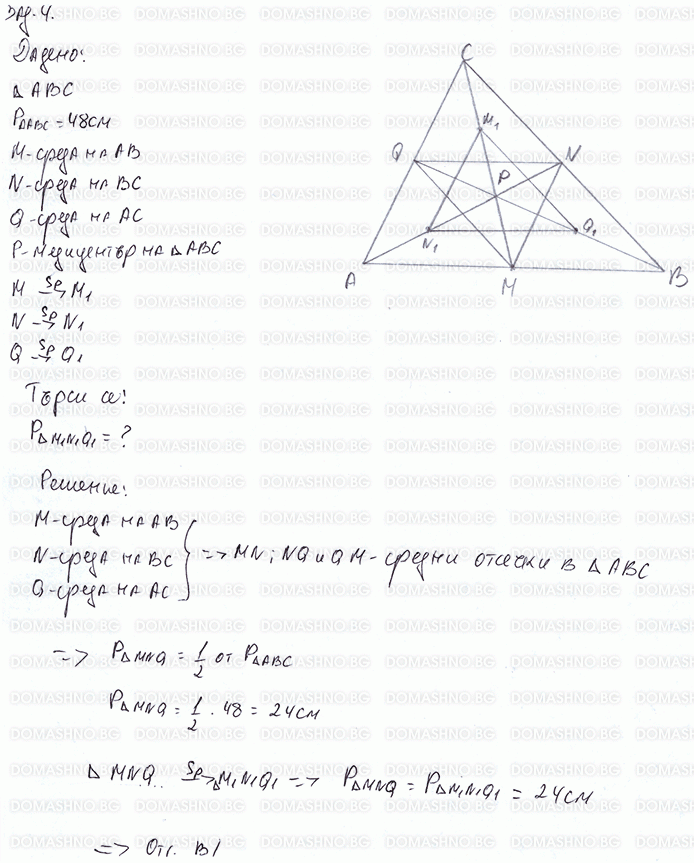 Зад. 4.
Дадено:
△ ABC
P△ABC = 48 см
M - среда на AB
N - среда на BC
Q - среда на AC
P - медицентър на △ABC
M →Sp M1
N →Sp N1
Q →Sp Q1
Търси се:
P△M1N1Q1 = ?
Решение:
M - среда на AB
N - среда на BC
Q - среда на AC
=> MN; NQ и QM - средни отсечки в △ ABC
=> P△MNQ = 1/2 от P△ABC
P△MNQ = 1/2 . 48 = 24 см
△ MNQ →Sp △M1N1Q1 => P△MNQ = P△M1N1Q1 = 24 см
=> Отг. В)
C
M1
Q
N
P
N1
Q1
A
M
B
DOMASHNO.BG